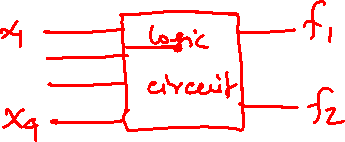 x1 logic f1
circuit
x4 f2